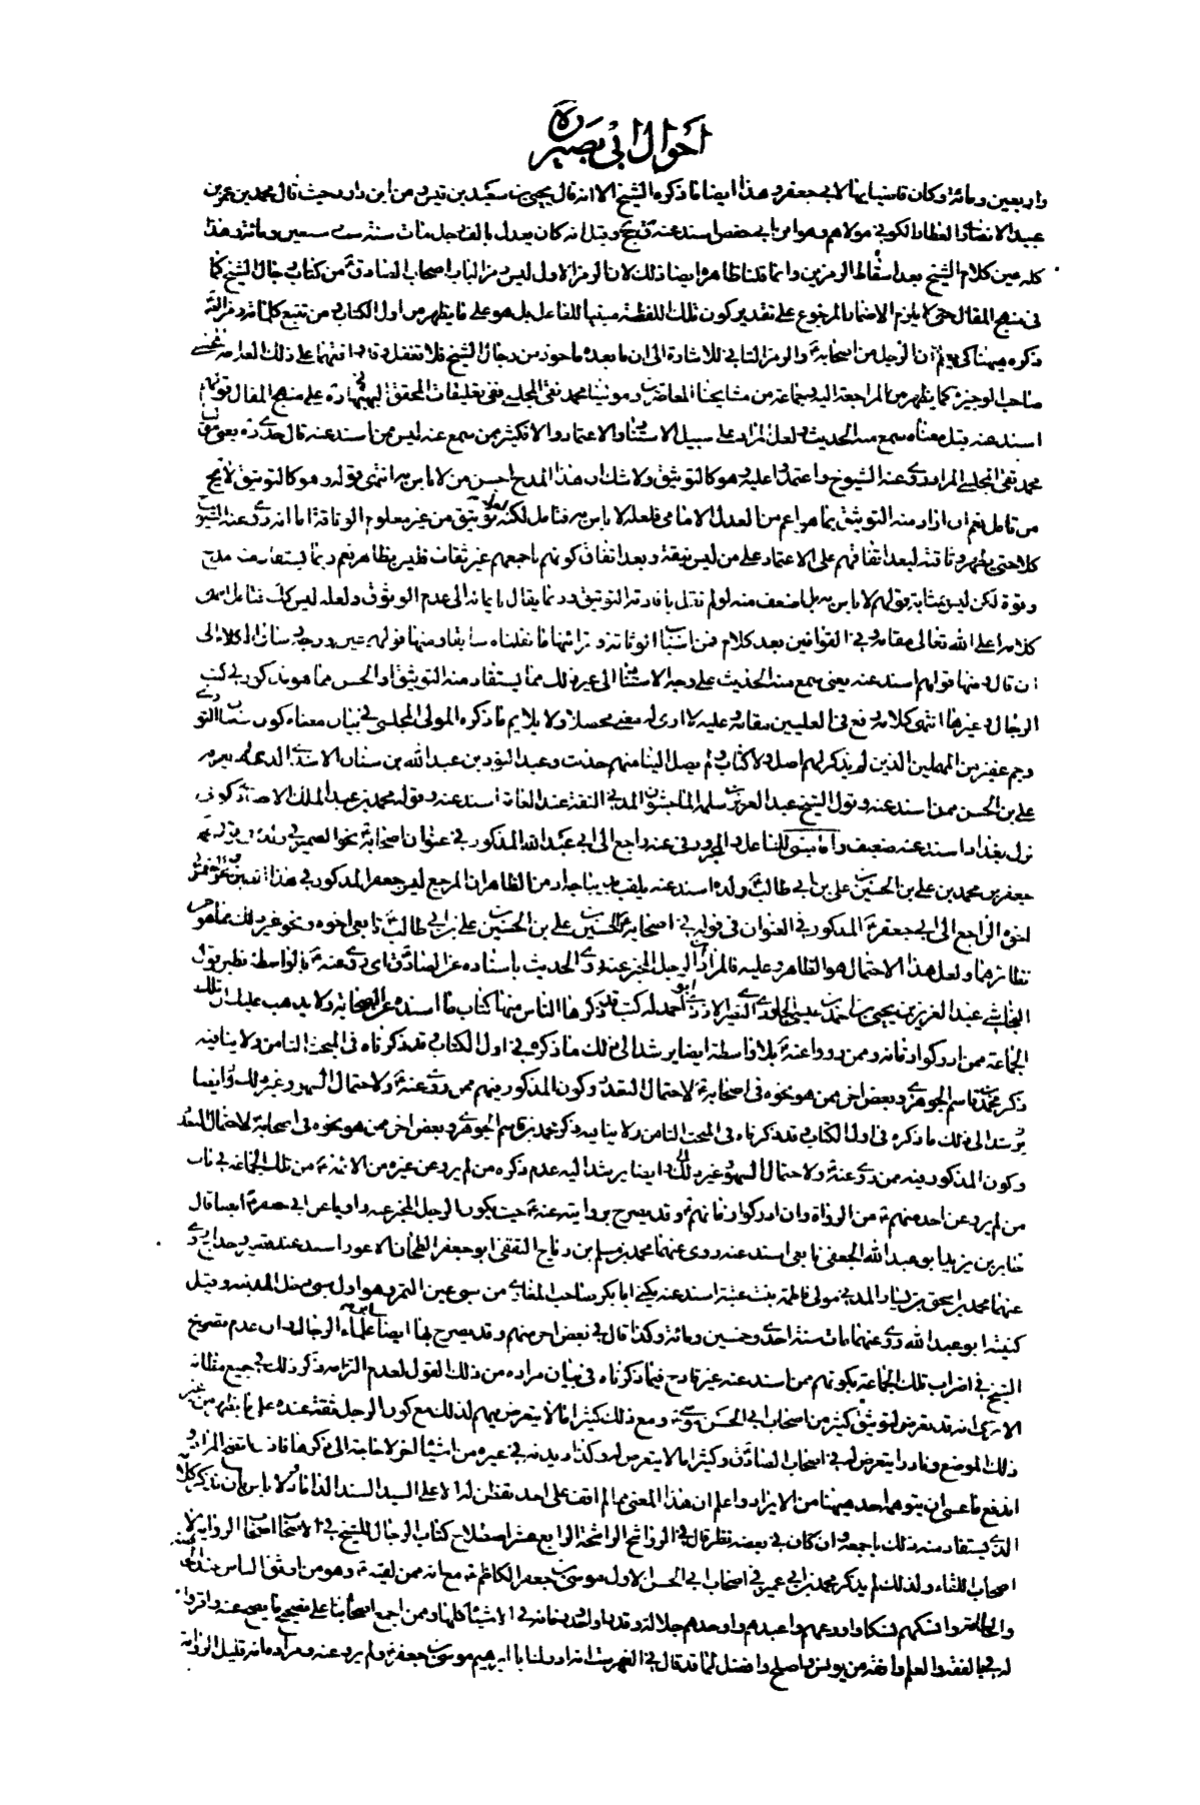 احوال ابي بصير ره
واربعين ومائة وكان قاضيا بها لابي جعفر وهذا ايضا ما ذكره الشيخ الا انه قال يحيى بن سعيد بن قيس ومن ابن داود حيث قال محمد بن عمر بن
عبيد الانصاري العطار الكوفي مولاهم وهو ابن ابي حفص اسند عنه ق جخ وقيل انه كان يعدل بالف رجل مات سنة ست سبعين ومائة وهذا
كله عين كلام الشيخ بعد اسقاط الرمزين وانما قلنا ظاهره ايضا ذلك لان الرمز الاول ليس رمز الباب اصحاب الصادق ع من كتاب رجال الشيخ كما
في منهج المقال حتى لا يلزم الاضمار المرجوع على تقدير كون تلك اللفظة مبنيا للفاعل بل هو على ما يظهر من اول الكتاب من تتبع كلماته رمز الى
ذكره هيهنا كي يعلم ان الرجل من اصحابه ع والرمز الثاني للاشارة الى ان ما بعده ماخوذ من رجال الشيخ فلا تغفل وقد وافقهما على ذلك العلامة المجلسي
صاحب الوجيزة كما يظهر من المراجعة اليه وجماعة من مشايخنا المعاصرين ومولينا محمد تقي المجلسي ففي تعليقات المحقق البهبهاني ره على منهج المقال قولهم
اسند عنه قيل معناه سمع منه الحديث ولعل المراد على سبيل الاستناد والاعتماد والا فكثير ممن سمع عنه ليس ممن اسند عنه قال جدي ره يعني مولينا
محمد تقي المجلسي المراد روى عنه الشيوخ واعتمدوا عليه وهو كالتوثيق ولا شك ان هذا المدح احسن من لا باس به انتهى قوله وهو كالتوثيق لا يخ
من تامل نعم ان اراد منه التوثيق بما هو اعم من العدل الامامي فلعله لا باس به فتامل لكنه توثيق من غير معلوم الوثاقة اما انه روى عنه الشيوخ
كلا حتى يظهر وثاقته لبعد اتفاقهم على الاعتماد على من ليس بثقة وبعد اتفاق كونهم باجمعهم غير ثقات فليس بظاهر نعم ربما يستفاد منه مدح
وقوة لكن ليس بمثابة قولهم لا باس به بل اضعف منه لو لم نقل بافادته التوثيق وربما يقال بايمائه الى عدم الوثوق ولعله ليس كك فتامل انتهى
كلامه اعلى الله تعالى مقامه وفي القوانين بعد كلام فمن اسباب الوثاقة وقرائنها ما نقلناه سابقا ومنها قولهم عين ووجه وساق الكلام الى
ان قال ومنها قولهم اسند عنه يعني سمع منه الحديث على وجه الاستناد الى غير ذلك مما يستفاد منه التوثيق او الحسن مما هو مذكور في كتب
الرجال وغيرها انتهى كلامه رفع في العليين مقامه وعليه لا ارى له معنى محصلا ولا يلايم ما ذكره المولى المجلسي في بيان معناه كون
وجم غفير من المهملين الذين لم يذكر لهم اصل ولا كتاب ولم يصل الينا منهم حديث وعبد النور بن عبد الله بن سنان الاسدي
علي بن الحسن ممن اسند عنه وقول الشيخ عبد العزيز بن سلمة الماجشون المدني الثقة عند العامة اسند عنه وقوله محمد بن عبد الملك الانصاري كوفي
نزل بغداد اسند عنه ضعيف واما مبني للفاعل والمجرور في عنه راجع الى ابي عبد الله المذكور في عنوان اصحابه ع نحو الضمير في
جعفر بن محمد بن علي بن الحسين بن علي بن ابي طالب ع ولده اسند عنه يلقب ديباجة اذ من الظاهر ان المرجع ليس جعفر المذكور في هذا
اخوه الراجع الى ابي جعفر ع المذكور في العنوان في قوله في اصحابه ع الحسين بن علي بن الحسين بن علي بن ابي طالب ع تابعي اخوه ونحو غير ذلك مما هو من
نظائرهما ولعل هذا الاحتمال هو الظاهر وعليه فالمراد ان الرجل المخبر عنه روى الحديث باسناده عن الصادق ع اي روى عنه ع بالواسطة نظير قول
النجاشي عبد العزيز بن يحيى بن احمد بن عيسى الجلودي الازدي البصري ابو احمد له كتب قد ذكرها الناس منها كتاب ما اسنده عن الصحابة ولا يذهب عليك ان تلك
الجماعة ممن ادركوا زمانه وممن رووا عنه ع بلا واسطة ايضا يرشد الى ذلك ما ذكره في اول الكتاب وقد ذكرناه في المبحث الثامن ولا ينافيه
ذكر محمد بن قاسم الجوهري وبعض اخر ممن هو نحوه في اصحابه ع لاحتمال التعدد وكون المذكور فيهم ممن روى عنه ع ولاحتمال السهو وغير ذلك وايضا
يرشد الى ذلك ما ذكره في اول الكتاب وقد ذكرناه في المبحث الثامن ولا ينافيه ذكر محمد بن قاسم الجوهري وبعض اخر ممن هو نحوه في اصحابه لاحتمال التعدد
وكون المذكور فيه ممن روى عنه ع ولاحتمال السهو وغير ذلك وايضا يرشد اليه عدم ذكره من لم يرو عن غيره من الائمة ع من تلك الجماعة في باب
من لم يرو عن احد منهم ع من الرواة وان ادركوا زمانهم ع وقد يصرح بروايته عنه ع حيث يكون الرجل المخبر عنه راويا عن ابي جعفر ع ايضا قال
جابر بن يزيد ابو عبد الله الجعفي تابعي اسند عنه روى عنهما محمد بن مسلم بن رباح الثقفي ابو جعفر الطحان الاعور اسند عنه قصير حداج روى
عنهما محمد بن اسحق بن يسار المدني مولى فاطمة بنت عتبة اسند عنه يكنى ابا بكر صاحب المغازي من سبي عين التمر وهو اول سبي دخل المدينة وقيل
كنيته ابو عبد الله روى عنهما مات سنة احدى وخمسين ومائة وكذا قال في بعض اخر منهم وقد يصرح بها ايضا علماء الرجال وان عدم تصريح
الشيخ في اضراب تلك الجماعة بكونهم ممن اسند عنه غير قادح فيما ذكرناه في بيان مراده من ذلك القول لعدم التزامه ذكر ذلك في جميع مظانه
الا ترى انه قد يعرض لتوثيق كثير من اصحاب ابي الحسن موسى ع ومع ذلك كثيرا ما لا يتعرض بهم لذلك مع كون الرجل ثقة عنده على ما يظهر من غير
ذلك الموضع ونادرا يتعرض له في اصحاب الصادق ع وكثيرا ما لا يتعرض له وكذا ديدنه في غيره من اشياء اخر لا حاجة الى ذكرها فاذا اتضح المراد و
اندفع ما عسى ان يتوهم احد هيهنا من الايراد واعلم ان هذا المعنى مما لم اقف على احد تفطن له الا على السيد السند الداماد ولا باس بان نذكر كلامه
الذي يستفاد منه ذلك باجمعه وان كان في بعضه نظر قال في الرواشح الراشحة الرابع عشر اصطلاح كتاب الرجال للشيخ في الاصحاب اصحاب الرواية لا
اصحاب اللقاء ولذلك لم يذكر محمد بن ابي عمير في اصحاب ابي الحسن الاول موسى بن جعفر الكاظم ع مع انه ممن لقيه ع وهو من اوثق الناس عند الخاصة
والعامة وانسكهم نسكا واورعهم واعبدهم واوحدهم جلالة وقدرا واحد زمانه في الاشياء كلها وممن اجمع اصحابنا على تصحيح ما يصح عنه واقروا
له في الفقه والعلم وافقه من يونس واصلح وافضل لما قد قال في الفهرست انه ادرك ابا ابراهيم موسى بن جعفر ع ولم يرو عنه ومراده انه قليل الرواية